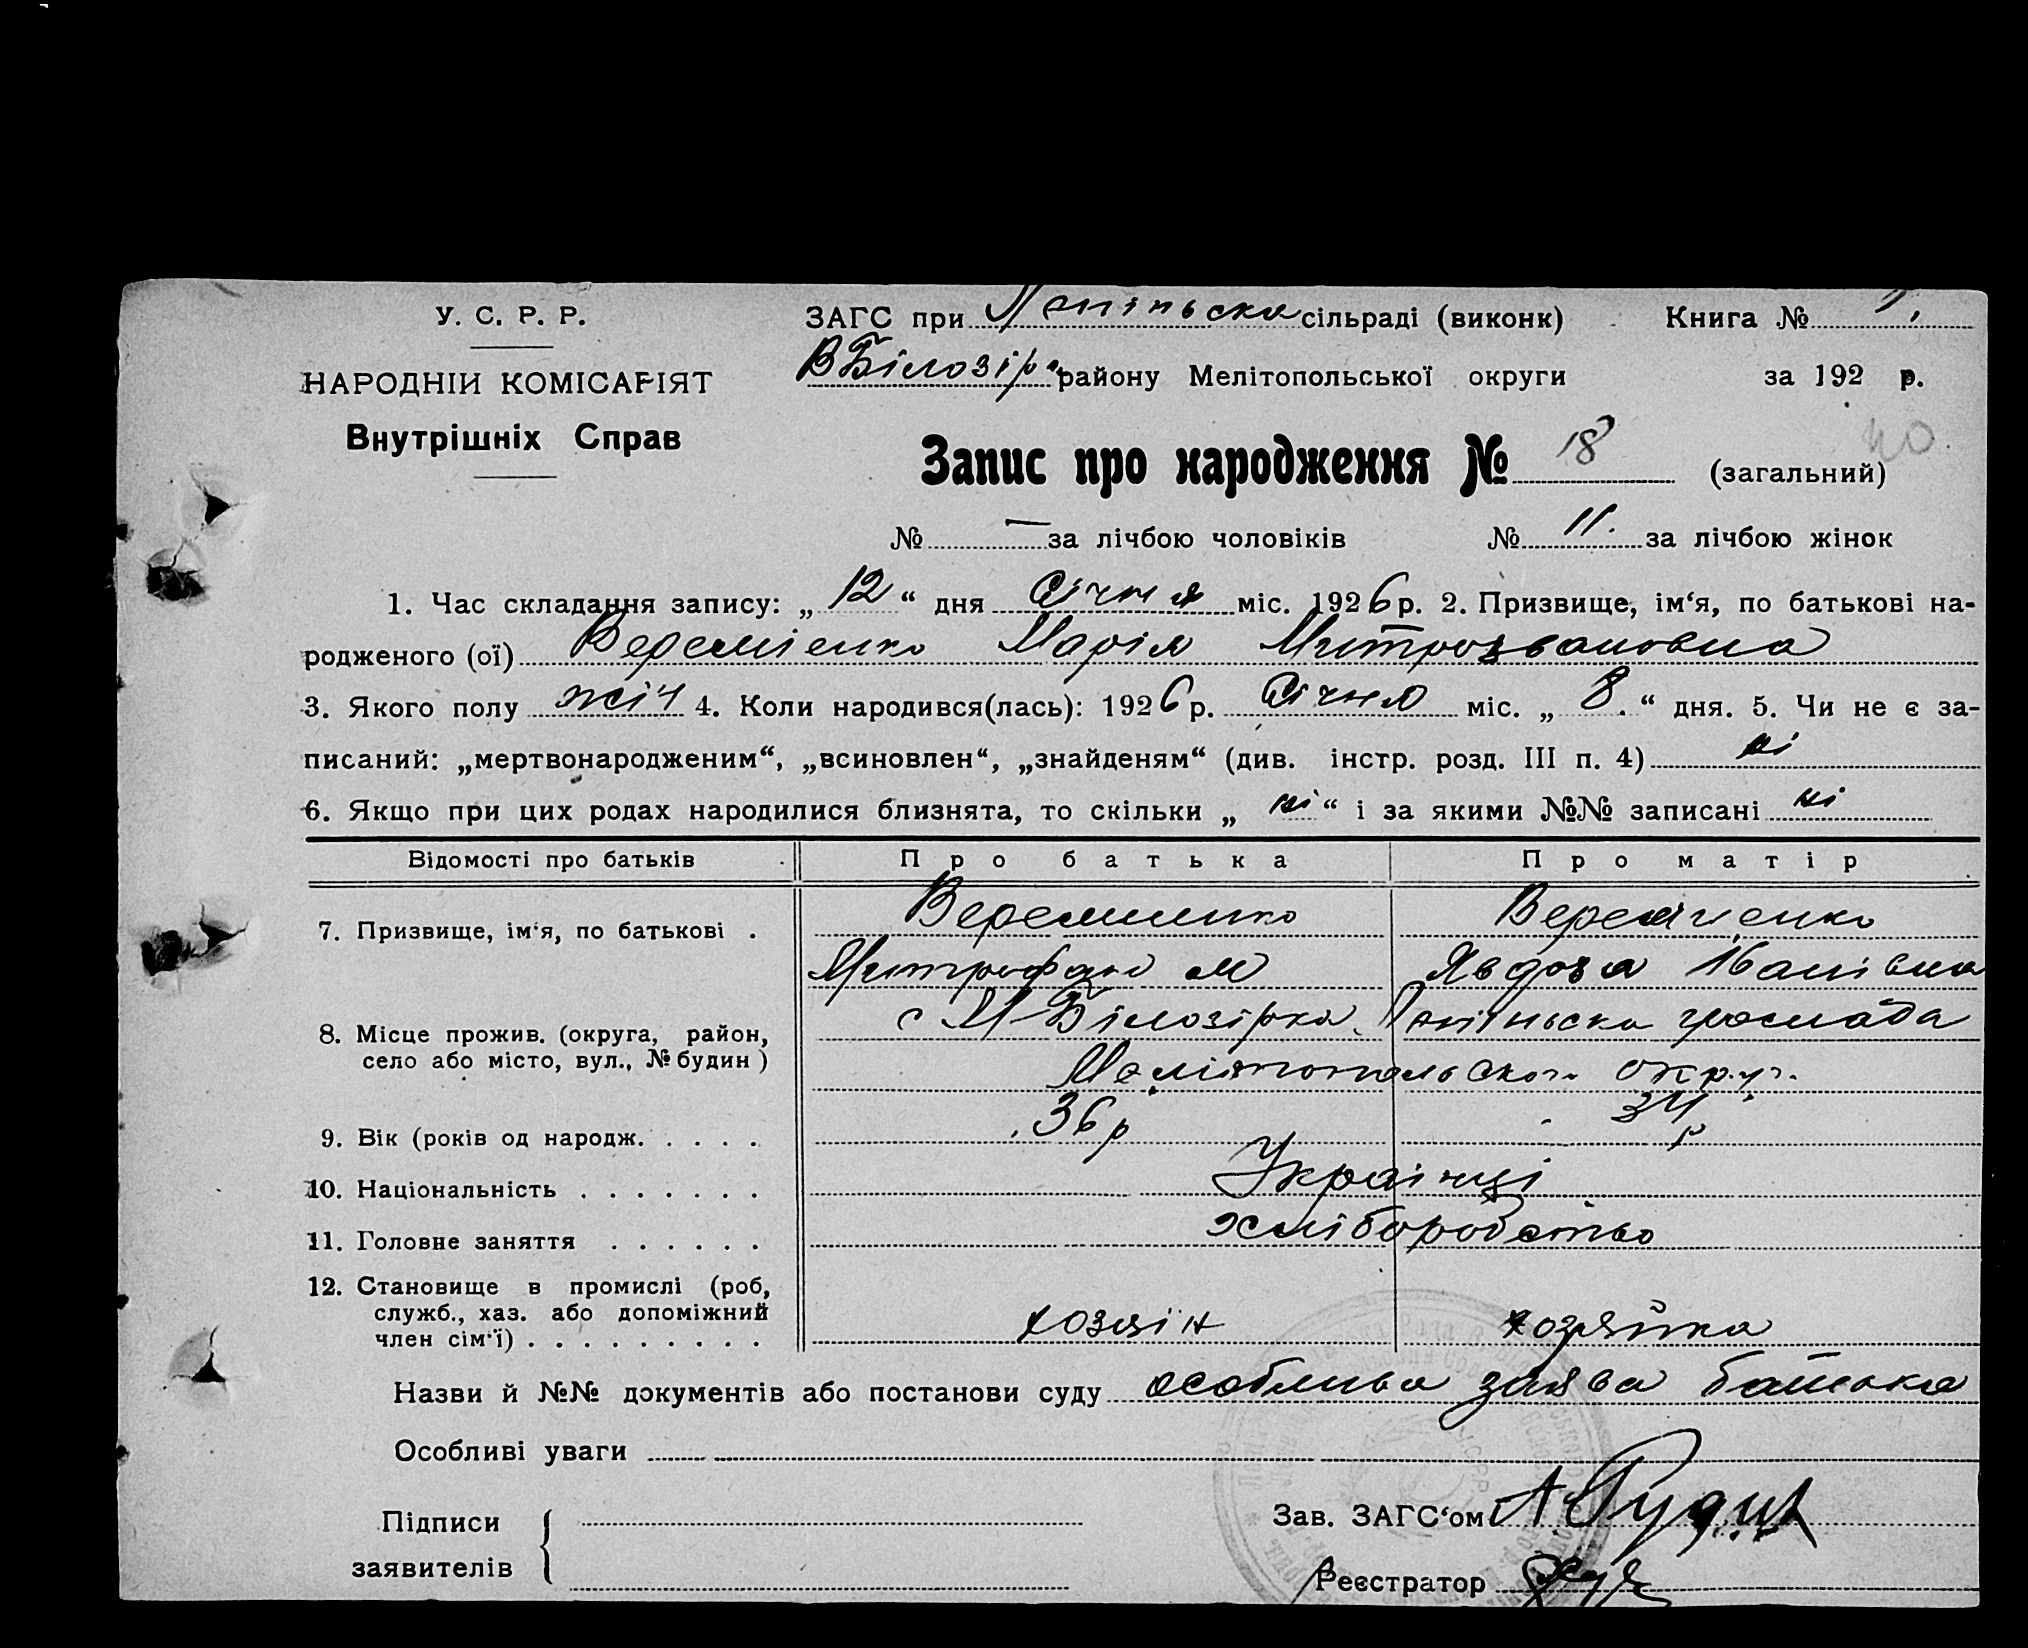 У. С. Р. Р.
ЗАГС при сільраді (виконк) Книга №
НАРОДНІЙ КОМІСАРІЯТ
ВБілозір району Мелітопольської округи за 192 р.
Внутрішніх Справ
Запис про народження № 18 (загальний)
40
№ — за лічбою чоловіків № 11. за лічбою жінок
1. Час складання запису: „ 12 “ дня Січня міс. 1926 р. 2. Призвище, ім‘я, по батькові на-
родженого (ої) Веремієнко Марія Митрофановна
3. Якого полу жіч 4. Коли народився(лась): 1926 р. Січня міс. „ 8. “ дня. 5. Чи не є за-
писаний: „мертвонародженим“, „всиновлен“, „знайденям“ (див. інстр. розд. III п. 4) ні
6. Якщо при цих родах народилися близнята, то скільки „ ні “ і за якими №№ записані ні
Відомості про батьків Про батька Про матір
7. Призвище, ім‘я, по батькові . Веремиенко Веремієнко
Митрофан М Явдоха Іванівна
8. Місце прожив. (округа, район, село або місто, вул., № будин) с М-Білозірка громада
Мелітопольскои окр.
9. Вік (років од народж. . . . . 36 р 34 р
10. Національність . . . . . . . Українці
11. Головне заняття . . . . . . хліборобство
12. Становище в промислі (роб, служб., хаз. або допоміжний член сім‘ї) . . . . . . . . . хозяін хозяйка
Назви й №№ документів або постанови суду особлива заява батька
Особливі уваги
Підписи заявителів
Зав. ЗАГС‘ом
Реєстратор